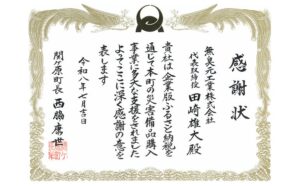 感謝状
無臭元工業株式会社
代表取締役 田﨑雄大殿
貴社は企業版ふるさと納税を
通じて本町の災害備品購入
事業に多大な支援をされました
よってここに深く感謝の意を
表します
令和八年七月吉日
関ケ原町長 西脇康世